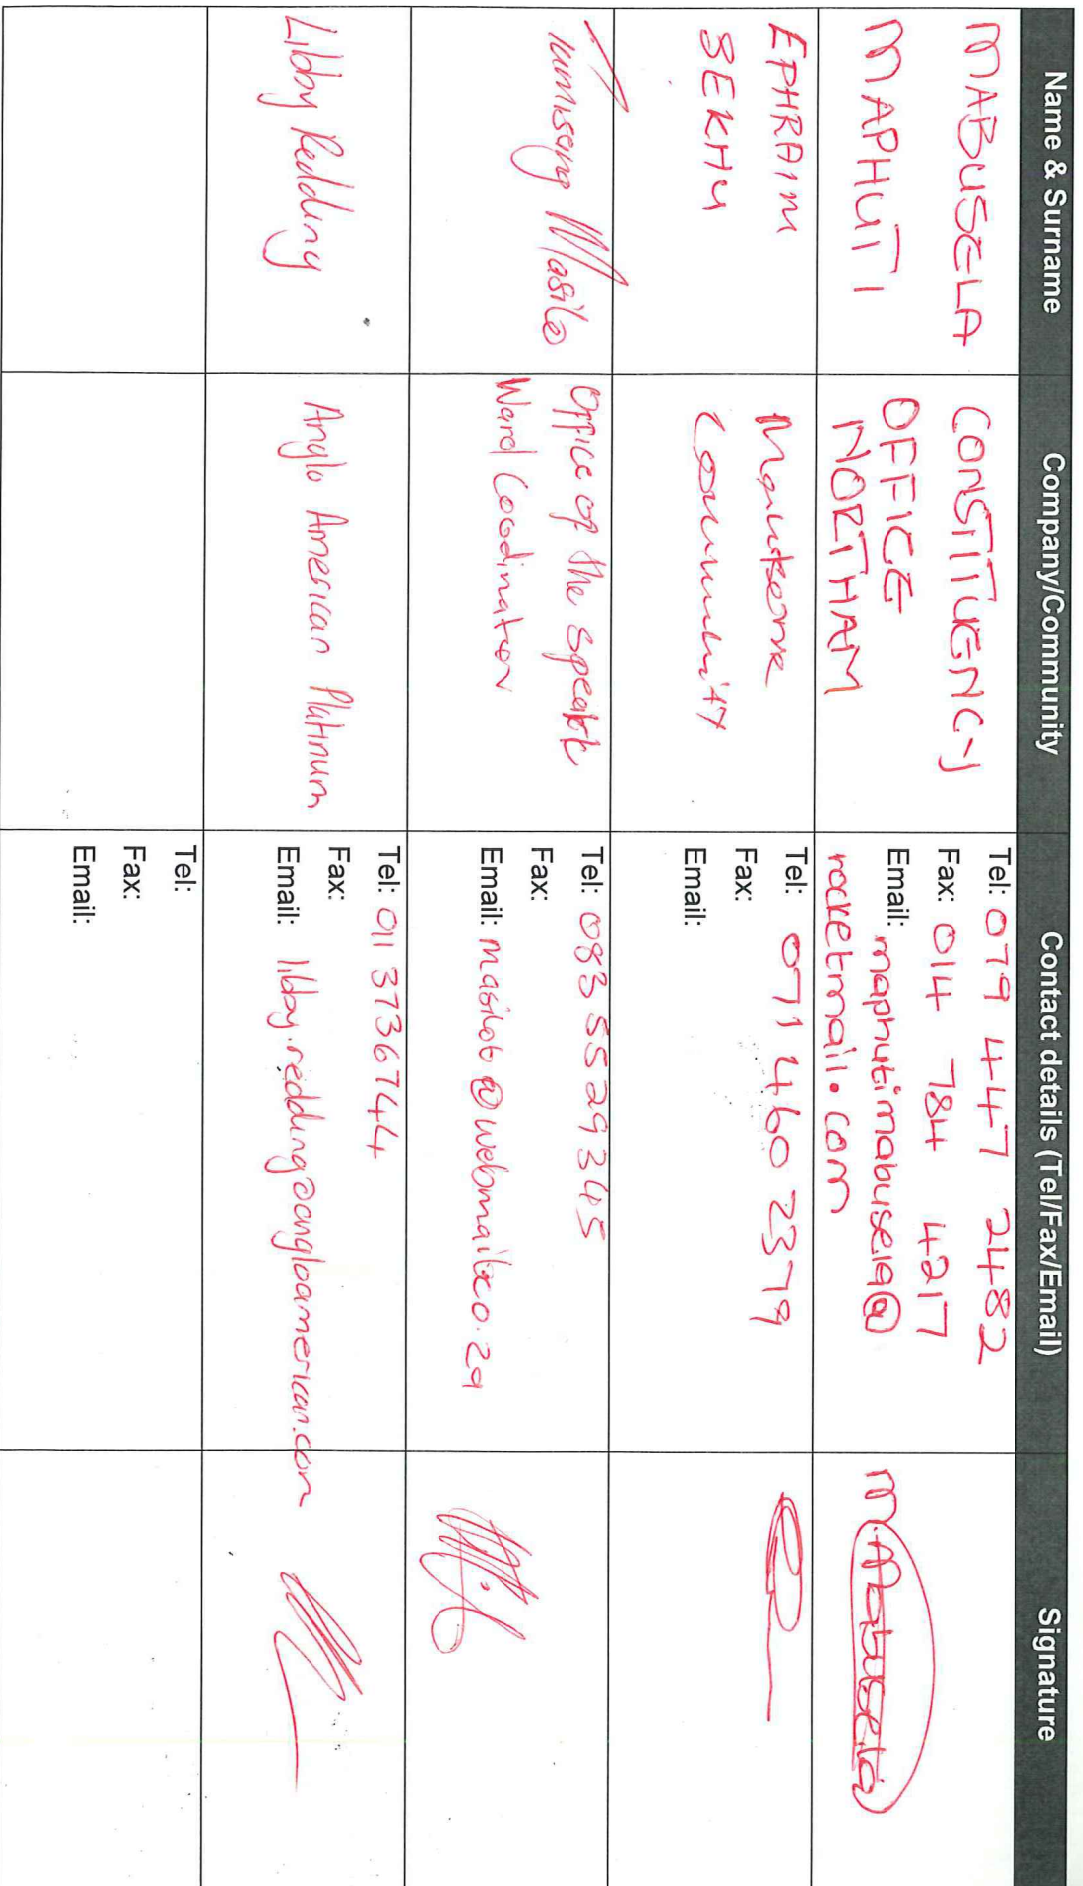 Name & Surname
Company/Community
Contact details (Tel/Fax/Email)
Signature
MABUSELA
MAPHUTI
CONSTITUENCY
OFFICE
NORTHAM
Tel: 079 447 2482
Fax: 014 784 4217
Email: maphutimabusela@
rocketmail.com
M. Mabusela
EPHRAIM
SEKHU
Community
Tel: 071 460 2379
Fax:
Email:
Masilo
Office of the Speaker
Ward Coodinator
Tel: 083 5529345
Fax:
Email:
Libby Redding
Anglo American Platinum
Tel: 011 3736744
Fax:
Email: libby.redding@angloamerican.com
Tel:
Fax:
Email: